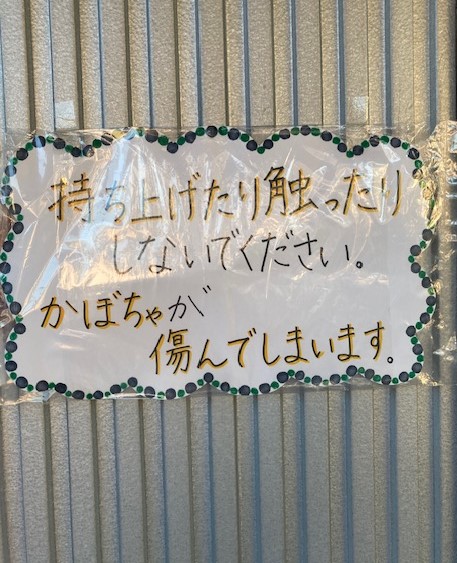 持ち上げたり触ったり
しないでください。
かぼちゃが
傷んでしまいます。